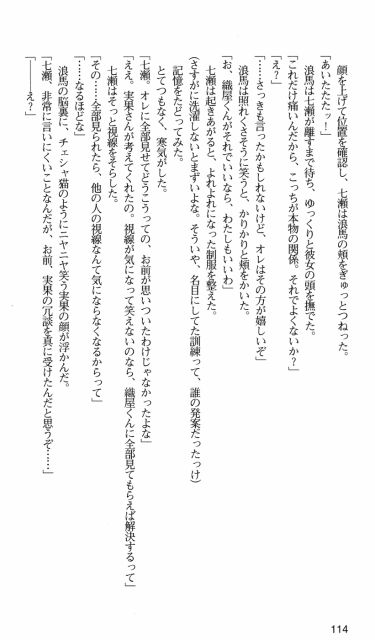 顔を上げて位置を確認し、七瀬は浪馬の頬をぎゅっとつねった。
「あいたたたッ！」
浪馬は七瀬が離すまで待ち、ゆっくりと彼女の頭を撫でた。
「これだけ痛いんだから、こっちが本物の関係。それでよくないか？」
「え？」
「……さっきも言ったかもしれないけど、オレはその方が嬉しいぞ」
浪馬は照れくさそうに笑うと、かりかりと頬をかいた。
「お、織屋くんがそれでいいなら、わたしもいいわ」
七瀬は起きあがると、よれよれになった制服を整えた。
（さすがに洗濯しないとまずいよな。そういや、名目にしてた訓練って、誰の発案だったっけ）
記憶をたどってみた。
とてつもなく、寒気がした。
「七瀬。オレに全部見せてどうこうっての、お前が思いついたわけじゃなかったよな」
「ええ。実果さんが考えてくれたの。視線が気になって笑えないのなら、織屋くんに全部見てもらえば解決するって」
七瀬はそっと視線をそらした。
「その……全部見られたら、他の人の視線なんて気にならなくなるからって」
「……なるほどな」
浪馬の脳裏に、チェシャ猫のようにニヤニヤ笑う実果の顔が浮かんだ。
「七瀬、非常に言いにくいことなんだが、お前、実果の冗談を真に受けたんだと思うぞ……」
「――え？」
114